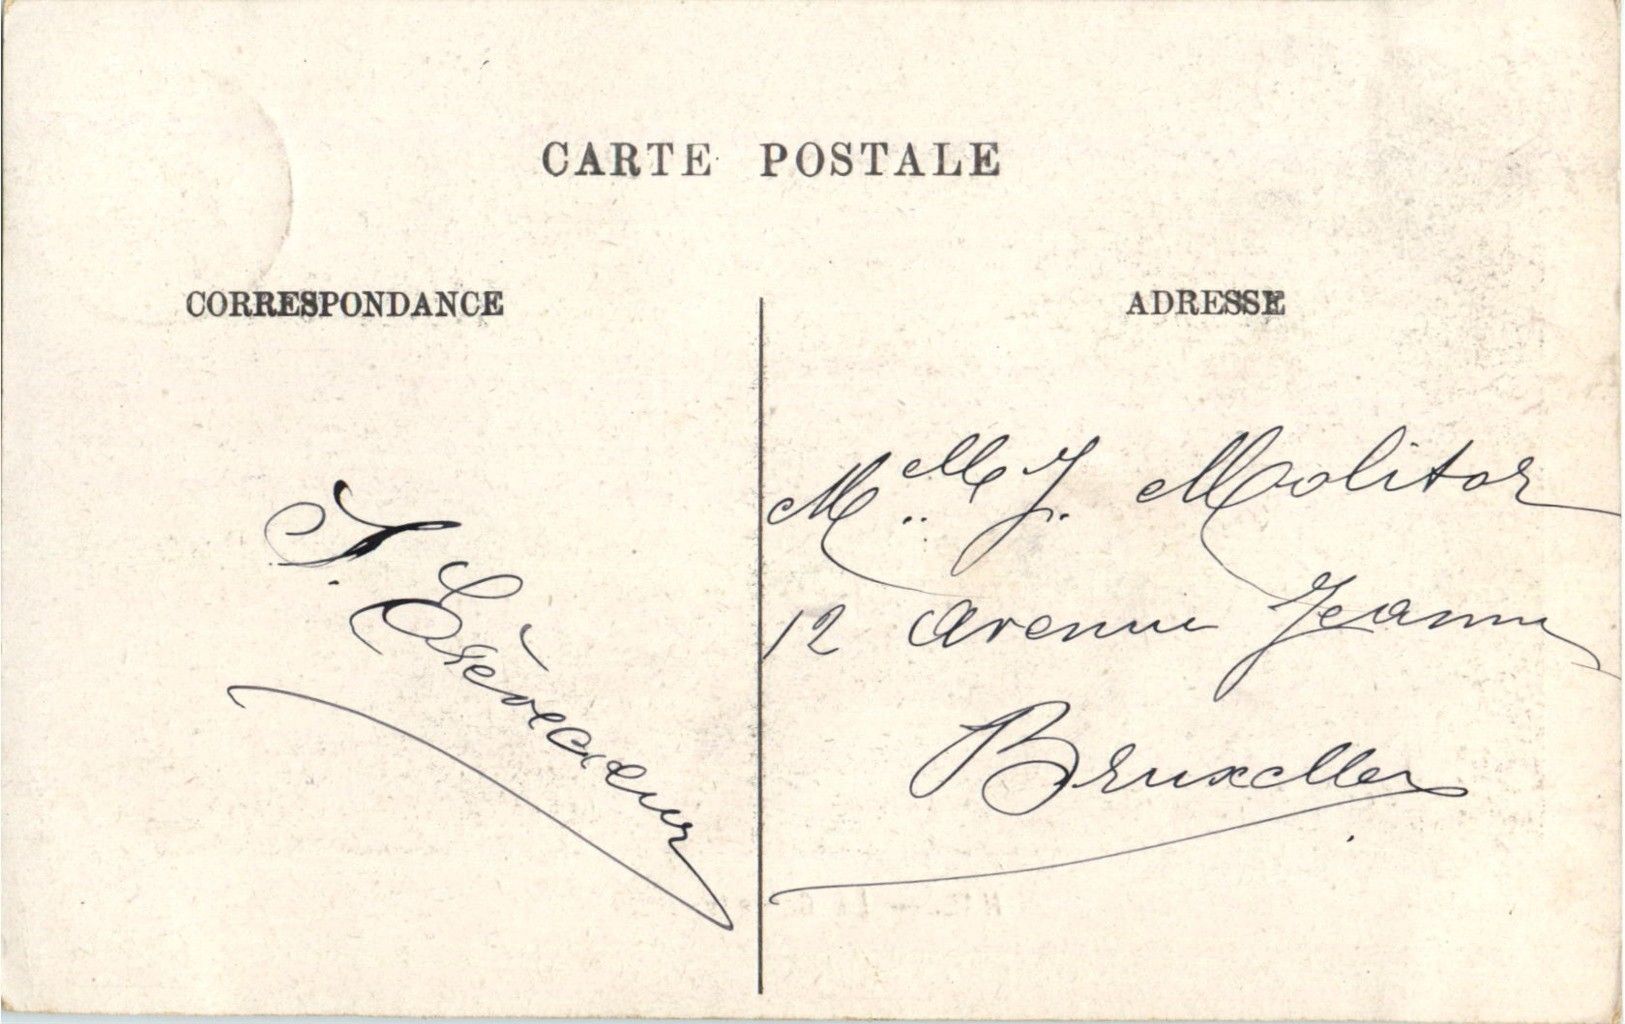 CARTE POSTALE
CORRESPONDANCE
ADRESSE
J.
Melle J. Molitor
12 Avenue Jeanne
Bruxelles